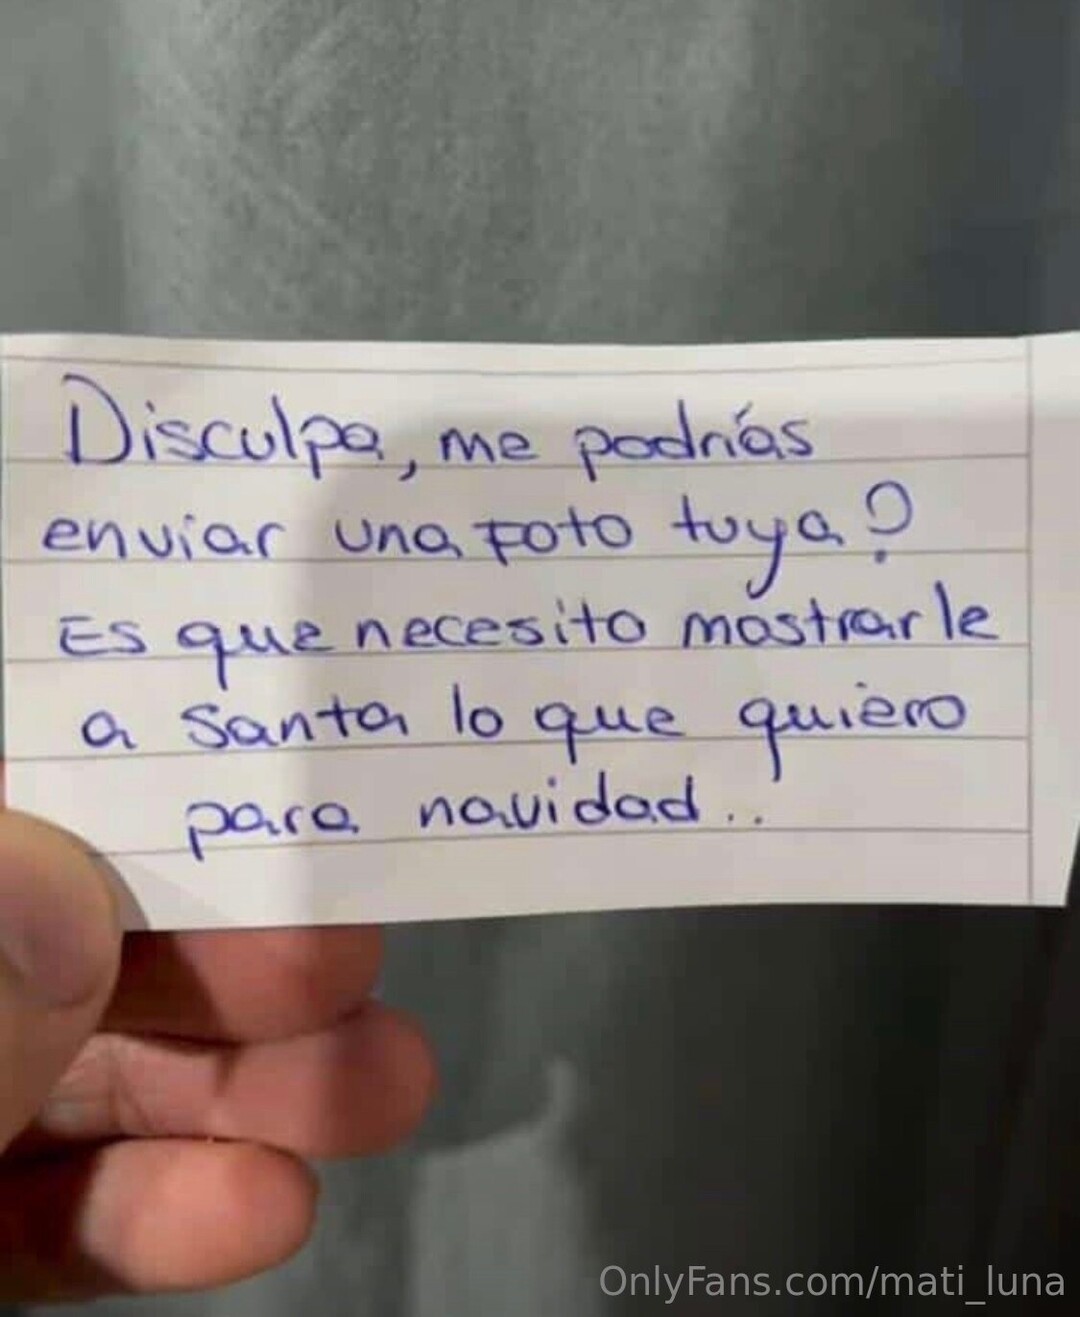 Disculpa, me podrías
enviar una foto tuya?
Es que necesito mostrarle
a Santa lo que quiero
para navidad..
OnlyFans.com/mati_luna